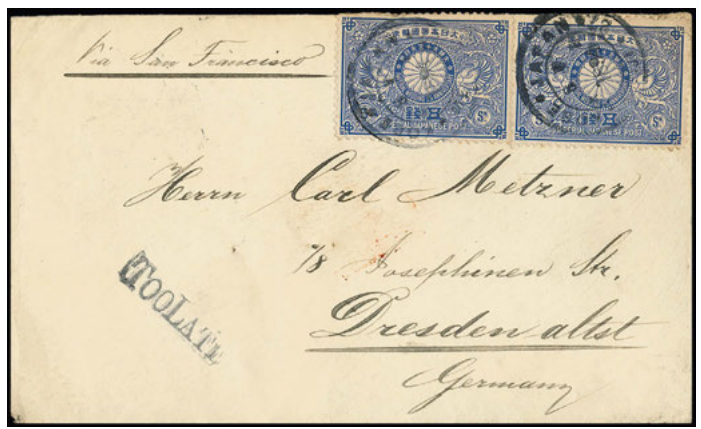 Via San Francisco
大日本帝國郵便
5Sn
IMPERIAL JAPANESE POST
JAPAN
5Sn
IMPERIAL JAPANESE POST
Herrn Carl Metzner
78 Josephinen Str.
Dresden altst
Germany
TOO LATE